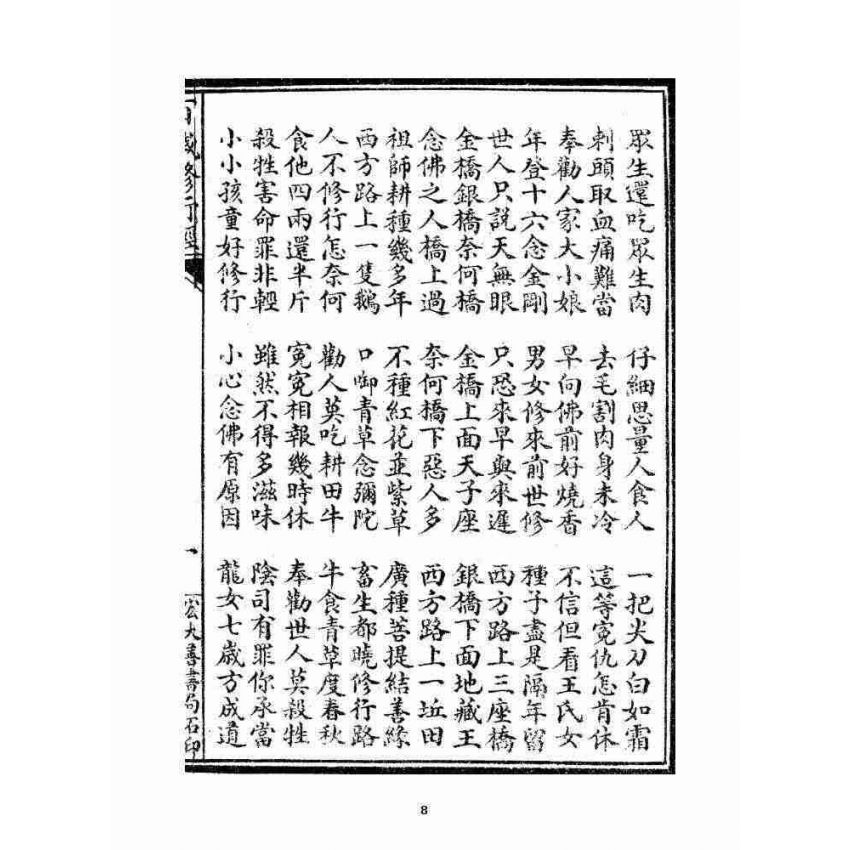 眾生還吃眾生肉 仔細思量人食人 一把尖刀白如霜
刺頭取血痛難當 去毛割肉身未冷 這等冤仇怎肯休
奉勸人家大小娘 早向佛前好燒香 不信但看王氏女
年登十六念金剛 男女修來前世修 種子盡是隔年留
世人只說天無眼 只恐來早與來遲 西方路上三座橋
金橋銀橋奈何橋 金橋上面天子座 銀橋下面地藏王
念佛之人橋上過 奈何橋下惡人多 西方路上一坵田
祖師耕種幾多年 不種紅花並紫草 廣種菩提結善緣
西方路上一隻鵝 口啣青草念彌陀 畜生都曉修行路
人不修行怎奈何 勸人莫吃耕田牛 牛食青草度春秋
食他四兩還半斤 冤冤相報幾時休 奉勸世人莫殺牲
殺牲害命罪非輕 雖然不得多滋味 陰司有罪你承當
小小孩童好修行 小心念佛有原因 龍女七歲方成道
修行經
宏大善書局石印
8